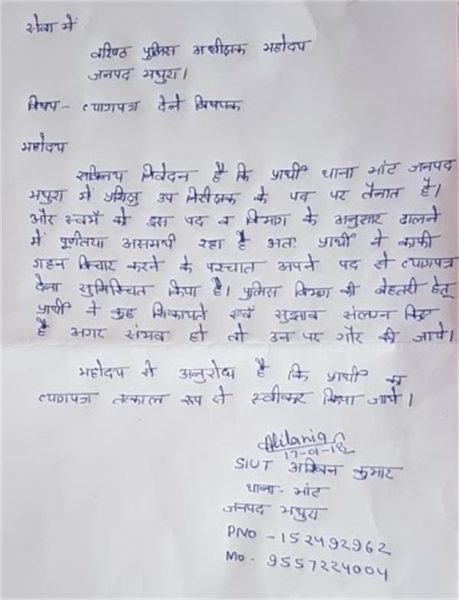 सेवा में
वरिष्ठ पुलिस अधीक्षक महोदय
जनपद मथुरा।
विषय - त्यागपत्र देने विषयक
महोदय
सविनय निवेदन है कि प्रार्थी थाना मांट जनपद
मथुरा में प्रशिक्षु उप निरीक्षक के पद पर तैनात है।
और स्वयं को इस पद व विभाग के अनुसार ढालने
में पूर्णतया असमर्थ रहा है अतः प्रार्थी ने काफी
गहन विचार करने के पश्चात अपने पद से त्यागपत्र
देना सुनिश्चित किया है। पुलिस विभाग की बेहतरी हेतू
प्रार्थी ने कुछ शिकायतें एवं सुझाव संलग्न किए
है अगर संभव हो तो उन पर गौर की जाये।
महोदय से अनुरोध है कि प्रार्थी का
त्यागपत्र तत्काल रूप से स्वीकार किया जाये।
17-01-18
SIUT कुमार
थाना - मांट
जनपद मथुरा
PNO - 152492962
Mo. 9557224004